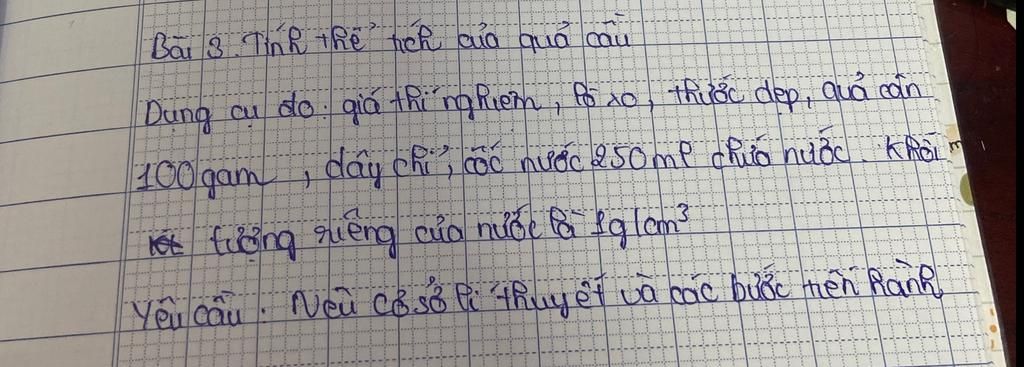 Bài 3. Tính thể tích của quả cầu
Dụng cụ đo: giá thí nghiệm, lò xo, thước dẹp, quả cân
100gam, dây chỉ, cốc nước 250ml chứa nước. Khối
lượng riêng của nước là 1g/cm³
Yêu cầu: Nêu cơ sở lí thuyết và các bước tiến hành